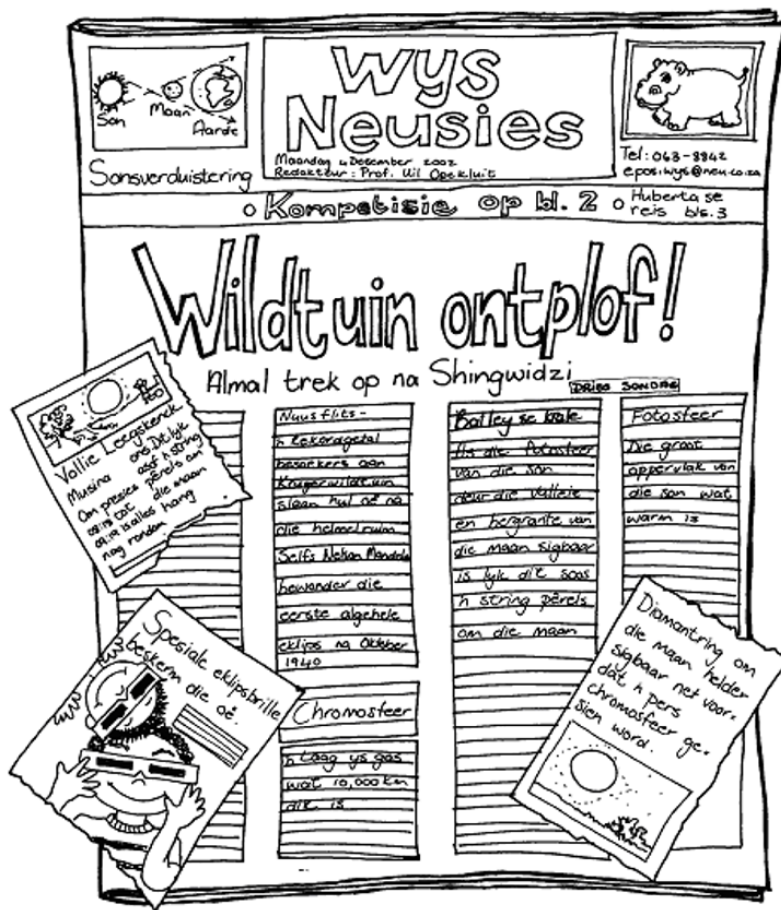 Son
Maan
Aarde
Sonsverduistering
Wys
Neusies
Maandag 4 Desember 2002
Redakteur: Prof. Uil Opekluit
Tel: 043-8842
epos: wys@neu.co.za
Kompetisie op bl. 2
Huberta se
reis bls. 3
Wildtuin ontplof!
Almal trek op na Shingwidzi
DRIES SONDAG
Vallie Leegekerck
Musina
Om presies
tot
is alles
nag rondom
ons. Dit lyk
asof 'n string
pêrels om
die maan
hang
Nuusflits -
'n Rekordgetal
besoekers aan
Krugerwildtuin
slaan hul oë na
die hemelruim
Selfs Nelson Mandela
bewonder die
eerste algehele
eklips na Oktober
1940
Chromosfeer
'n Laag ys gas
wat 10,000 km
dik is
Bailey se krale
As die fotosfeer
van die son
deur die valleie
en bergrante van
die maan sigbaar
is lyk dit soos
'n string pêrels
om die maan
Fotosfeer
Die groot
oppervlak van
die son wat
warm is
Spesiale eklipsbrille
beskerm die oë.
Diamantring om
die maan helder
sigbaar net voor-
dat 'n pers
chromosfeer ge-
sien word.